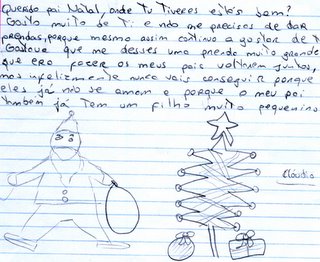 Querido pai Natal, onde Tu Tiveres estás bem?
Gosto muito de Ti e não me precisas de dar
prendas, porque mesmo assim continuo a gostar de T
Gostava que me desses uma prenda muito grande
que era fazer os meus pais voltarem juntos,
mas infelizmente nunca vais conseguir porque
eles já não se amam e porque o meu pai
também já Tem um filho muito pequenino
Cláudia